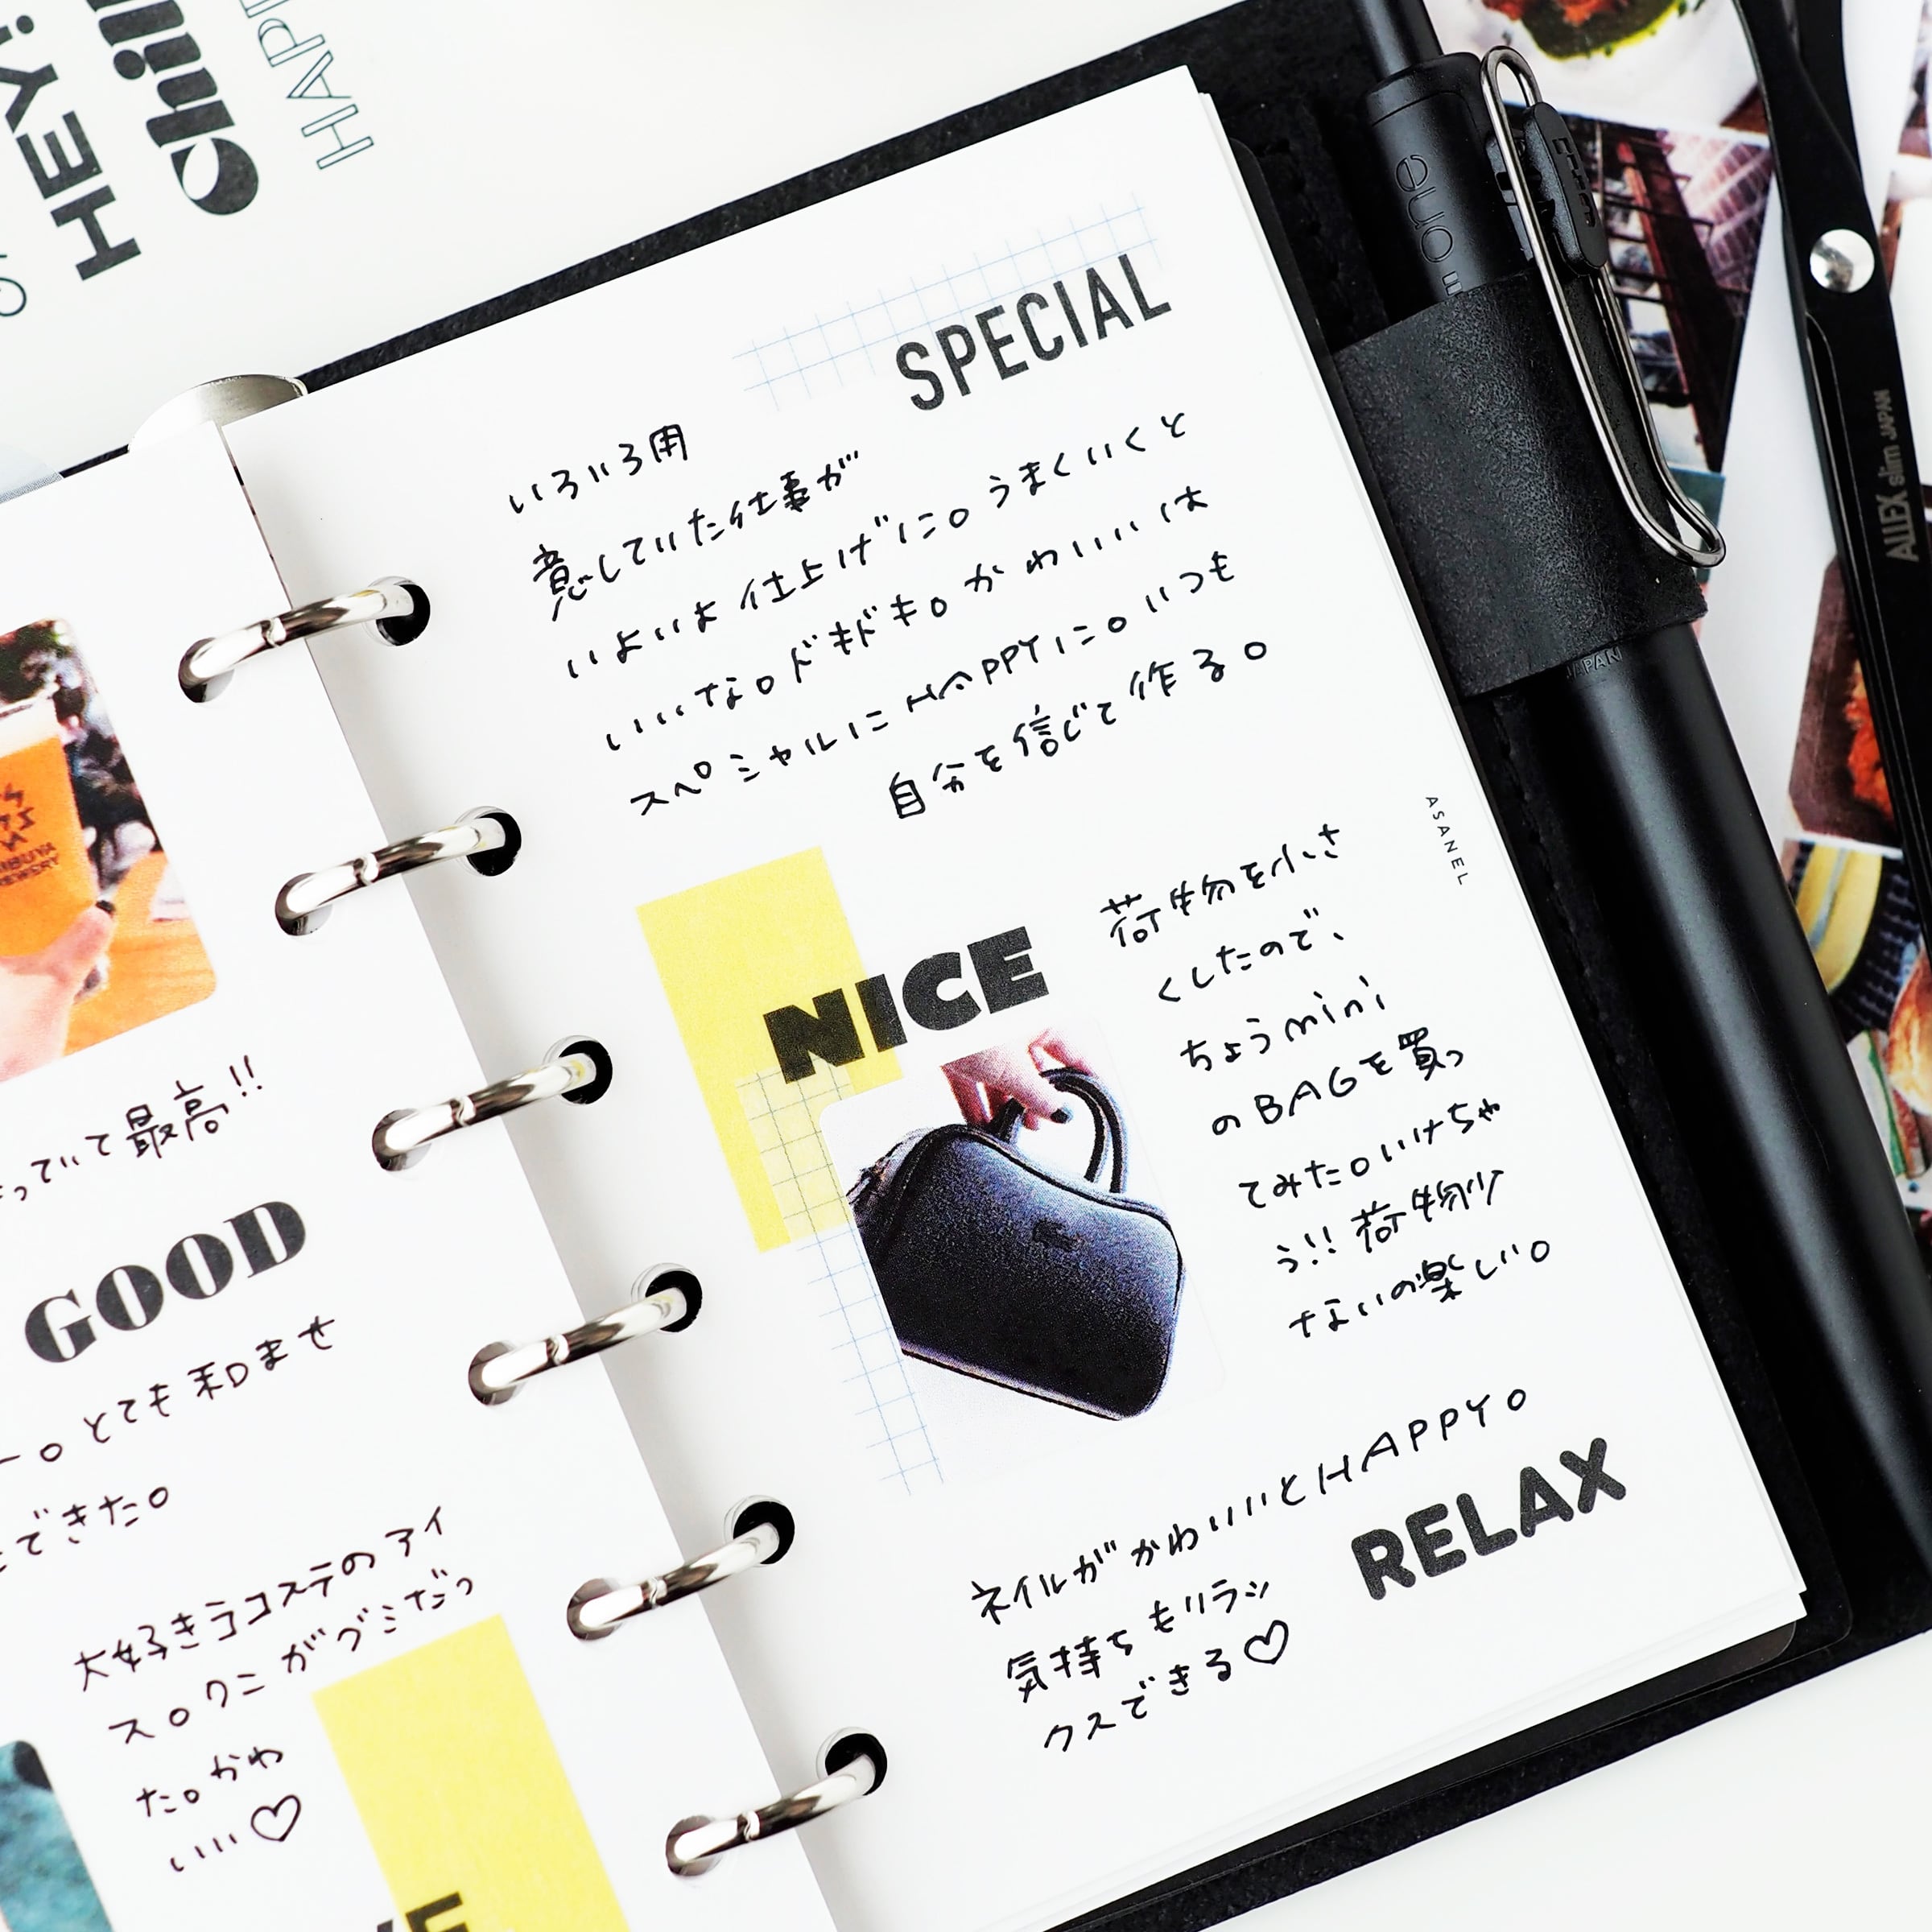 HEY!
Chill
SPECIAL
いろいろ用
意していた仕事が
いよいよ仕上げに。うまくいくと
いいな。ドキドキ。かわいいは
スペシャルにHAPPYに。いつも
自分を信じて作る。
NICE
荷物を小さ
くしたので、
ちょうmini
のBAGを買っ
てみた。いけちゃ
う!!荷物少
ないの楽しい。
ネイルがかわいいとHAPPY。
気持ちもリラッ
クスできる♡
RELAX
ASANEL
っていて最高!!
GOOD
とても和ませ
できた。
大好きラコステのアイ
ス。ワニがグミだっ
た。かわ
いい♡
one
JAPAN
ALLEX slim JAPAN